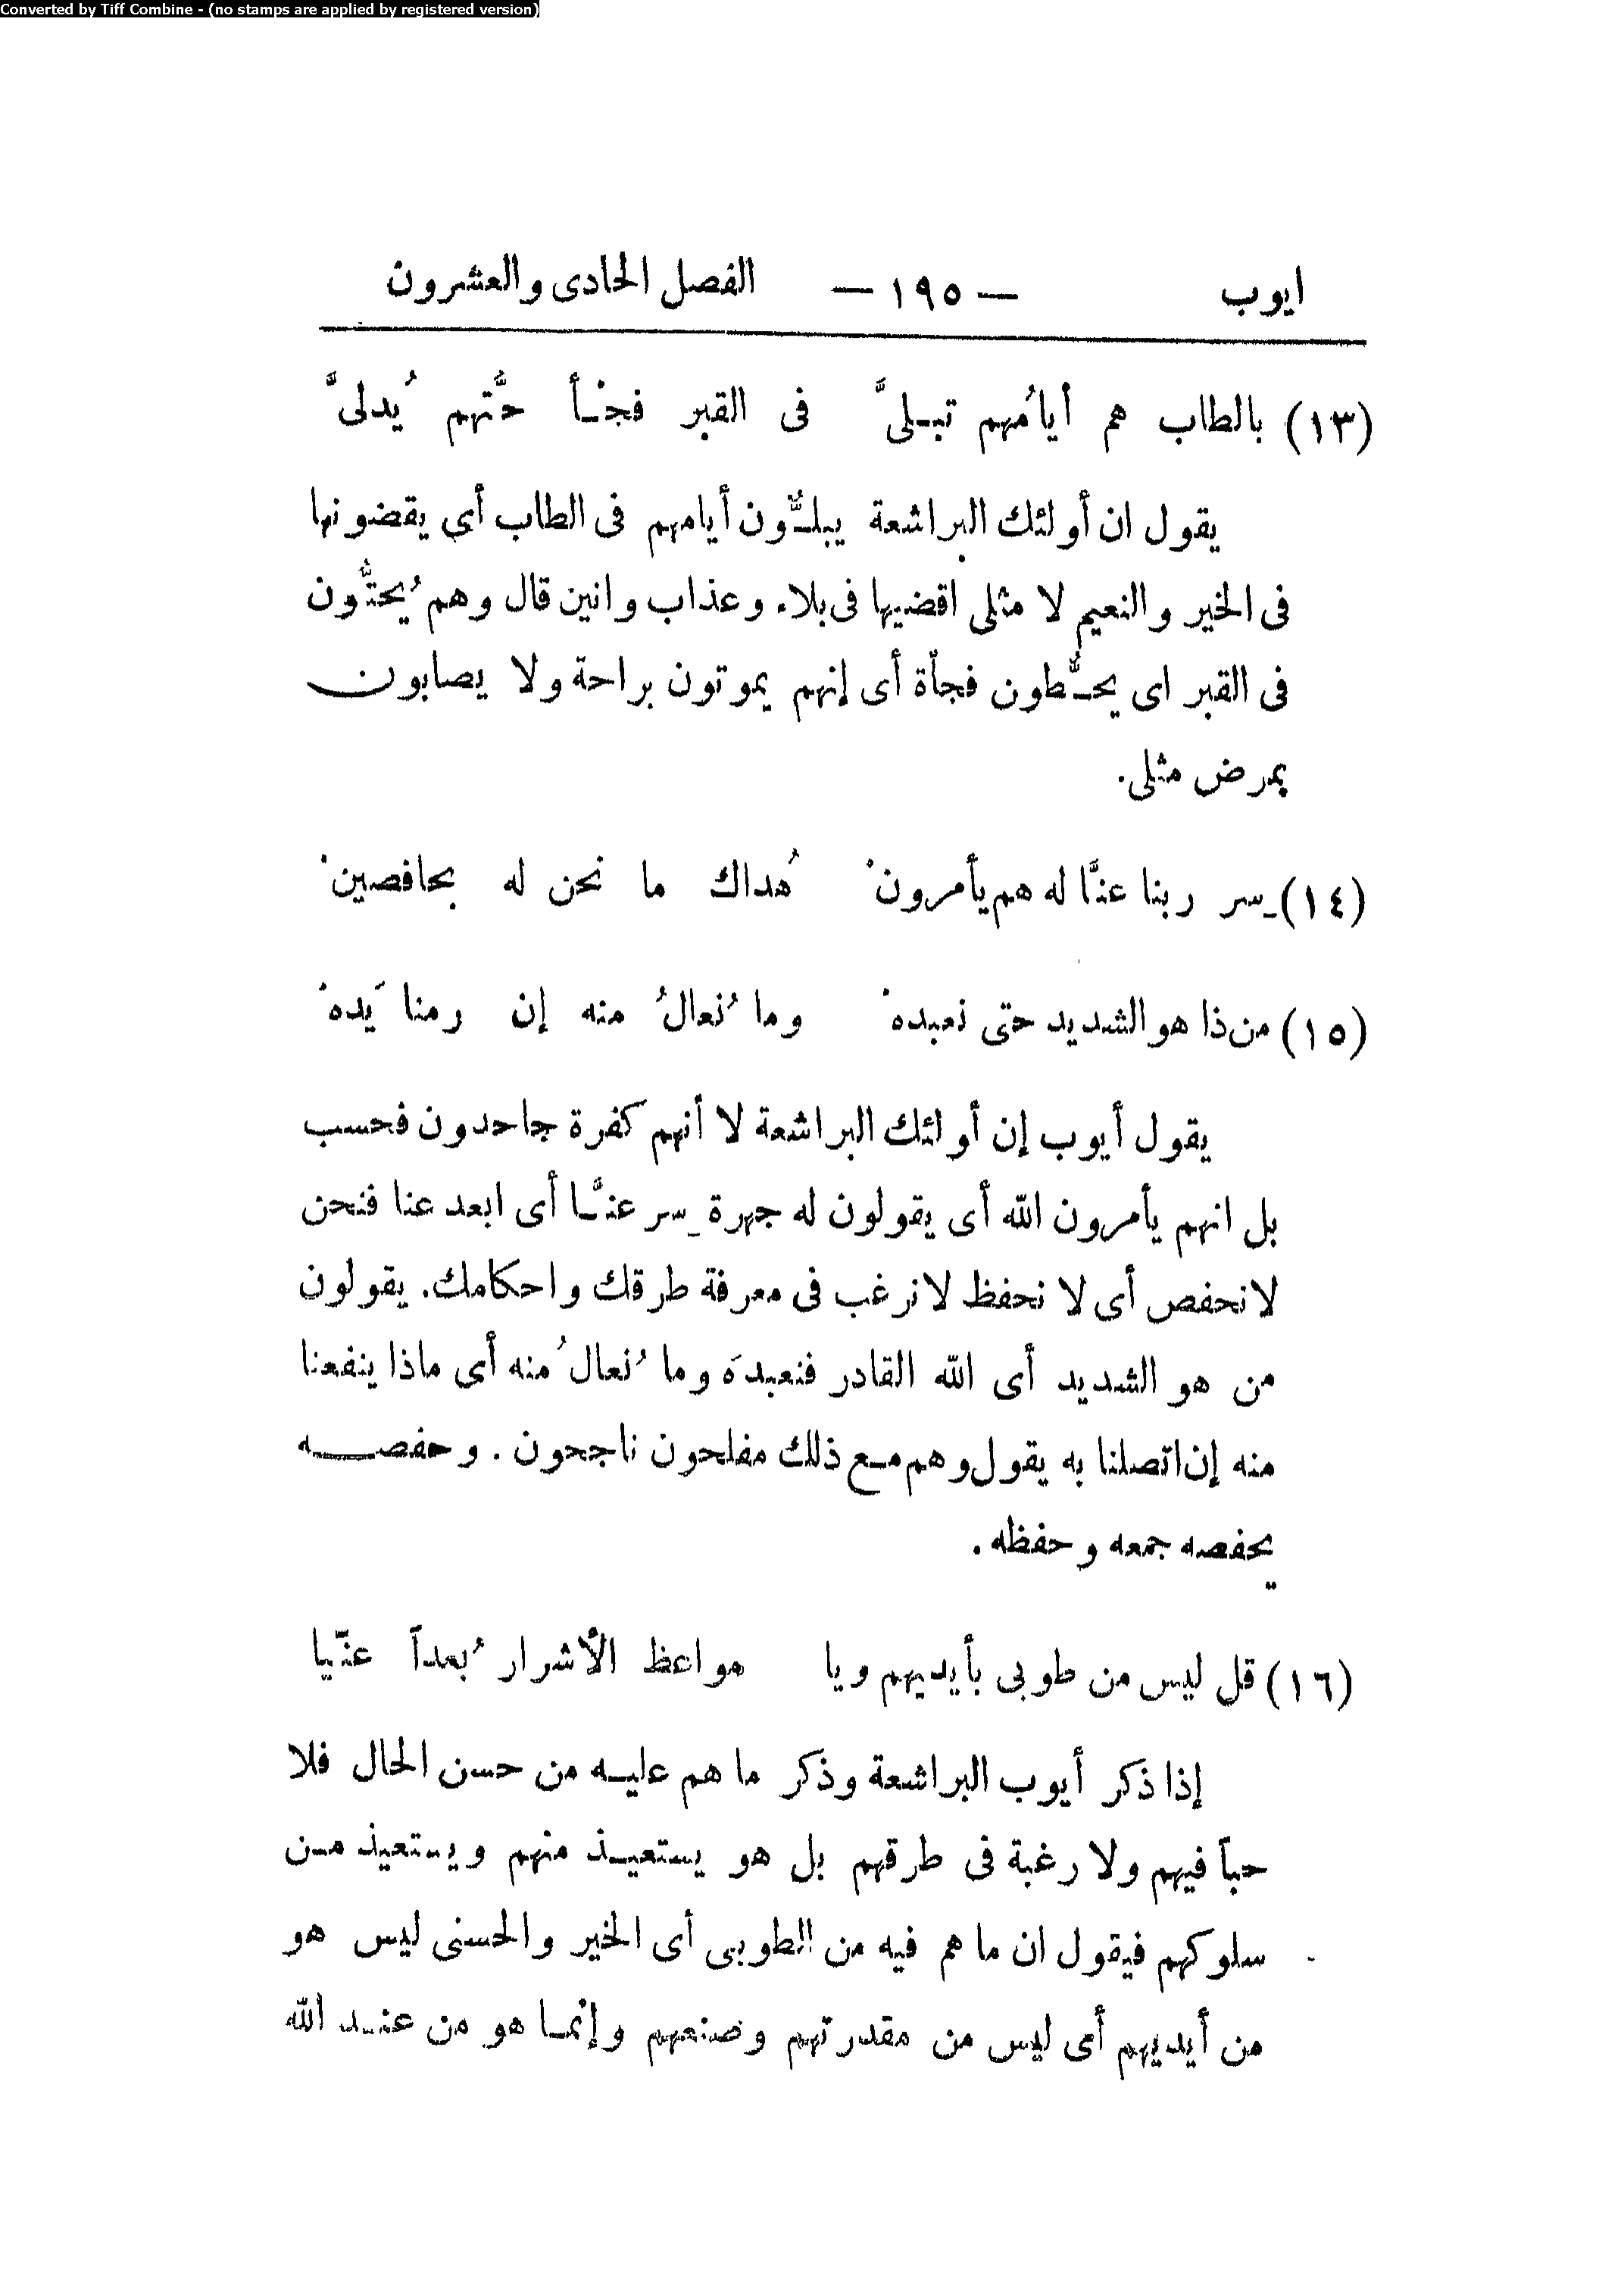 Converted by Tiff Combine - (no stamps are applied by registered version)
ايوب — ١٩٥ — الفصل الحادى والعشرون
(١٣) بالطاب هم أيامُهم تبـلىَّ فى القبر فجـْأ حتَّهم يُدلىَّ
يقول ان أولئك البراشعة يبلـُّون أيامهم فى الطاب أى يقضونها
فى الخير والنعيم لا مثلى اقضيها فى بلاء وعذاب وانين قال وهم يُحتُّون
فى القبر اى يحـُّطون فجأة أى إنهم يموتون براحة ولا يصابون
بمرض مثلى.
(١٤) سِر ربنا عنَّا له هم يأمرونْ هُداك ما نحن له بحافصينْ
(١٥) من ذا هو الشديد حتى نعبدهْ وما نُعالُ منه إن رمنا يَدهْ
يقول أيوب إن أولئك البراشعة لا أنهم كفرة جاحدون فحسب
بل انهم يأمرون الله أى يقولون له جهرة سِر عنـَّا أى ابعد عنا فنحن
لا نحفص أى لا نحفظ لا نرغب فى معرفة طرقك واحكامك. يقولون
من هو الشديد أى الله القادر فنعبدَه وما نُعالُ منه أى ماذا ينفعنا
منه إن اتصلنا به يقول وهم مـع ذلك مفلحون ناجحون. وحفصـــه
يحفصه جمعه وحفظه.
(١٦) قل ليس من طوبى بأيديهم ويا مواعظ الأشرار بُعداً عنّيا
إذا ذكر أيوب البراشعة وذكر ما هم عليـه من حسن الحال فلا
حباً فيهم ولا رغبة فى طرقهم بل هو يستعيـذ منهم ويستعيذ مـن
سلوكهم فيقول ان ما هم فيه من الطوبى أى الخير والحسنى ليس هو
من أيديهم أى ليس من مقدرتهم وصنعهم وإنمـا هو من عنـد الله